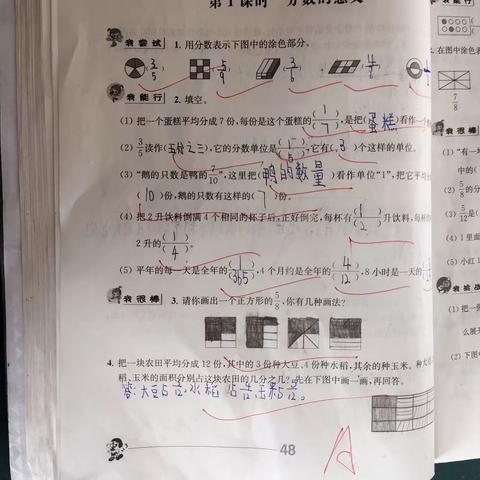 第1课时 分数的意义
我尝试 1. 用分数表示下图中的涂色部分。
(3/5) (5/9) (3/6) (4/8)
我能行 2. 填空。
(1) 把一个蛋糕平均分成7份,每份是这个蛋糕的(1)/(7),是把(蛋糕)看作
(2) 3/5读作(五分之三),它的分数单位是(1)/(5),它有(3)个这样的单位。
(3) “鹅的只数是鸭的7/10”,这里把(鸭的数量)看作单位“1”,把它平均分
(10)份,鹅的只数有这样的(7)份。
(4) 把2升饮料倒满4个相同的杯子后,正好倒完,每杯有(1)/(2)升饮料,每杯
2升的(1)/(4)。
(5) 平年的每一天是全年的(1)/(365),4个月约是全年的(4)/(12),8小时是一天的
我很棒 3. 请你画出一个正方形的5/8,你有几种画法?
4. 把一块农田平均分成12份,其中的3份种大豆、4份种水稻,其余的种玉米。种大
稻、玉米的面积分别占这块农田的几分之几?先在下图中画一画,再回答。
答:大豆占3/12,水稻占4/12,玉米占5/12。
48
A
我能行
在图中涂色表
7/8
我很棒
(1) “有一
(2) 5/8的分
(3) 5/12是(
(4) 1里面
(5) 小红
我挑战
(1) 把一
么展开
(2) 下图中